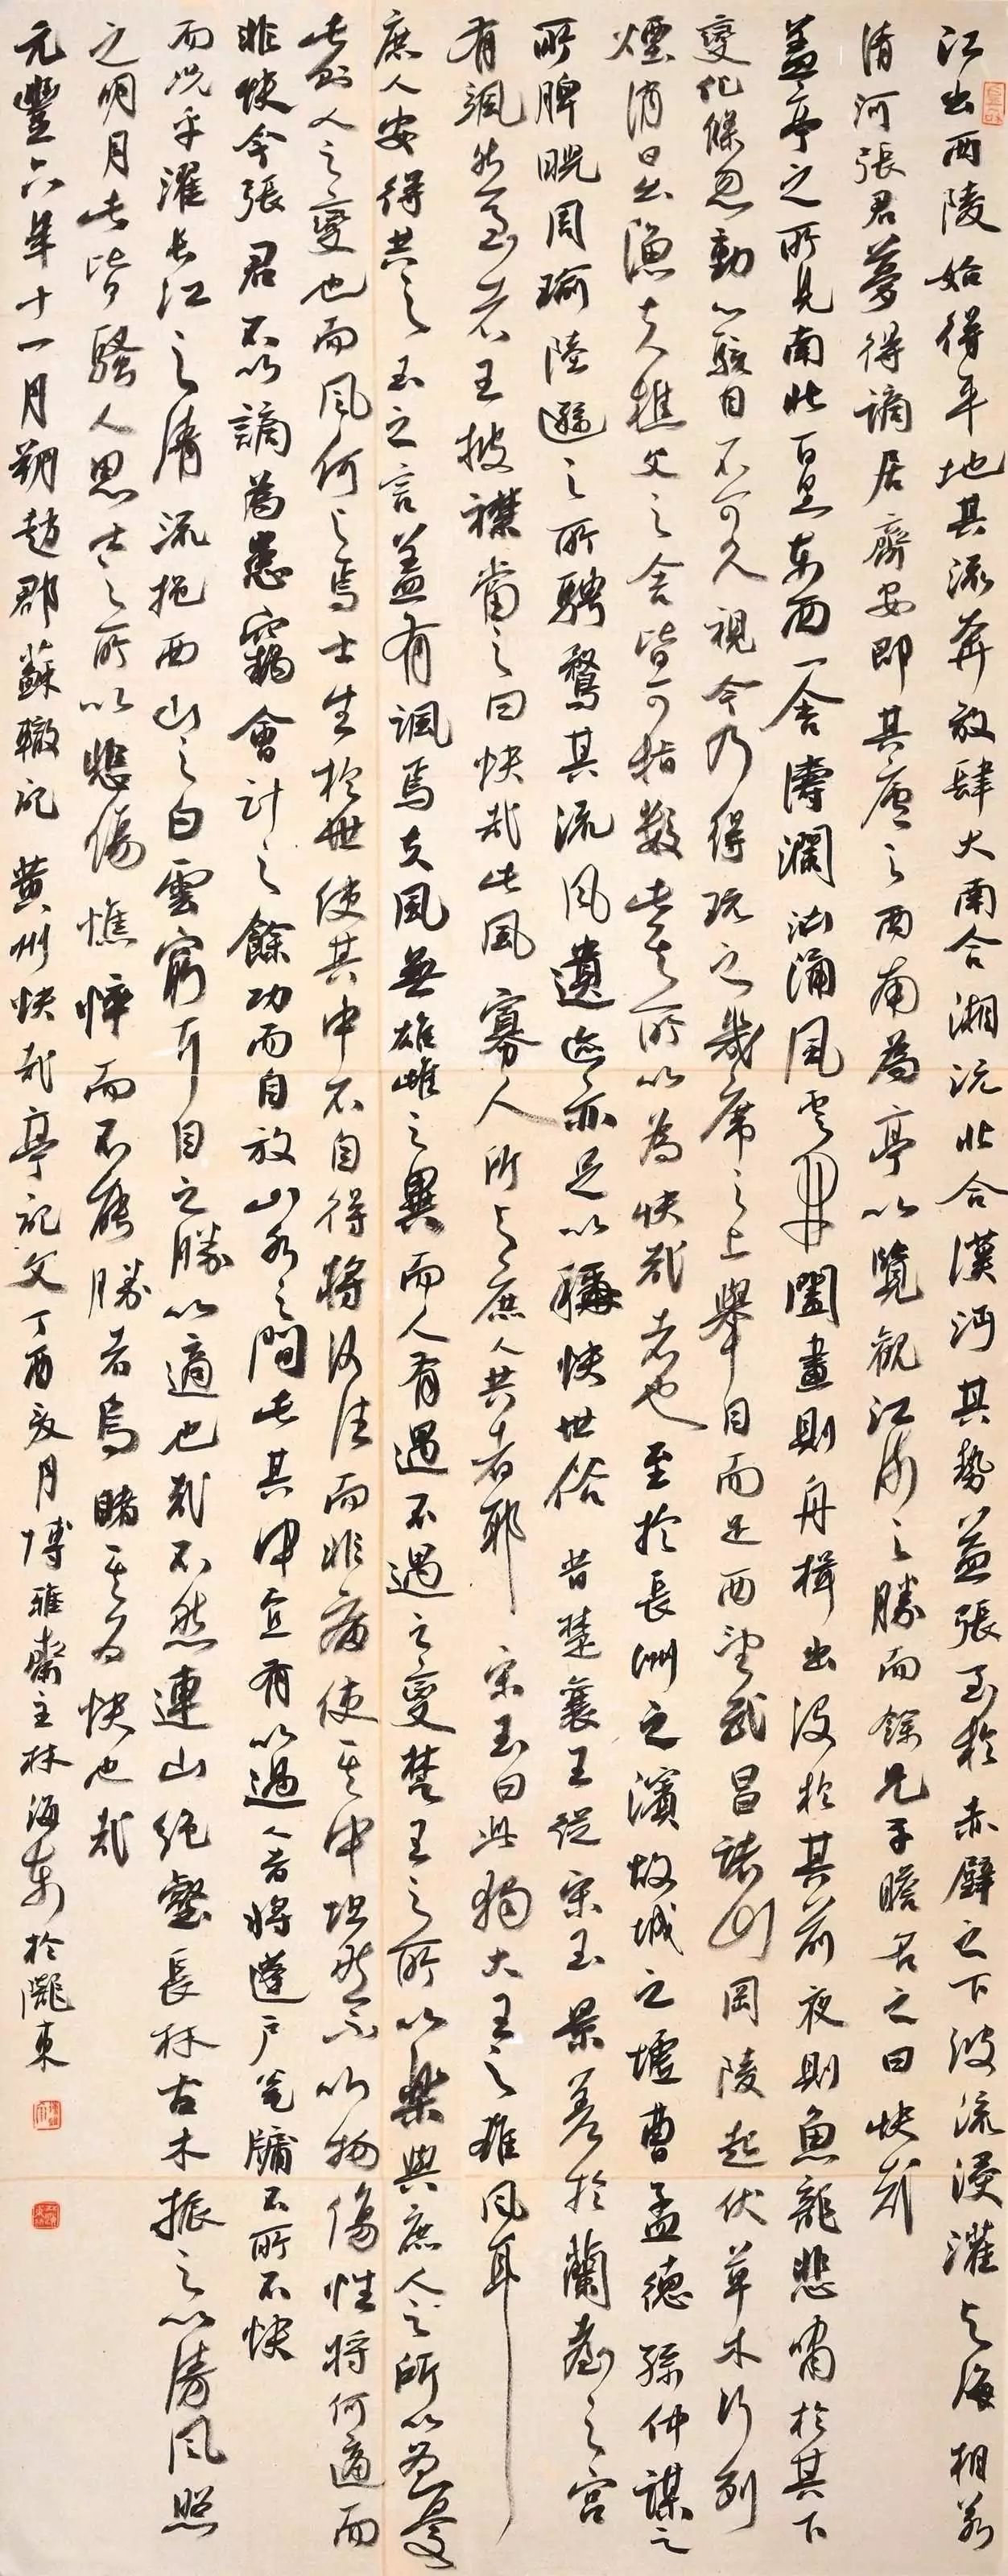 江出西陵始得平地其流奔放肆大南合湘沅北合漢沔其勢益張至於赤壁之下波流浸灌與海相若
清河張君夢得謫居齊安即其廬之西南為亭以覽觀江流之勝而餘兄子瞻名之曰快哉
蓋亭之所見南北百里東西一舍濤瀾洶涌風雲開闔晝則舟楫出沒於其前夜則魚龍悲嘯於其下
變化倏忽動心駭目不可久視今乃得玩之幾席之上舉目而足西望武昌諸山岡陵起伏草木行列
煙消日出漁夫樵父之舍皆可指數此其所以為快哉者也至於長洲之濱故城之墟曹孟德孫仲謀之
所睥睨周瑜陸遜之所騁騖其流風遺跡亦足以稱快世俗昔楚襄王從宋玉景差於蘭臺之宮
有颯然至者王披襟當之曰快哉此風寡人所與庶人共者耶宋玉曰此獨大王之雄風耳
庶人安得共之玉之言蓋有諷焉夫風無雄雌之異而人有遇不遇之變楚王之所以樂與庶人之所以為憂
此則人之變也而風何與焉士生於世使其中不自得將何往而非病使其中坦然不以物傷性將何適而
非快今張君不以謫為患竊會計之餘功而自放山水之間此其中宜有以過人者將蓬戶甕牖無所不快
而況乎濯長江之清流挹西山之白雲窮耳目之勝以適也哉不然連山絕壑長林古木振之以清風照
之明月此皆騷人思士之所以悲傷憔悴而不能勝者烏睹其為快也哉
元豐六年十一月朔趙郡蘇轍記 黃州快哉亭記文丁酉夏月博雅齋主林海東於隴東